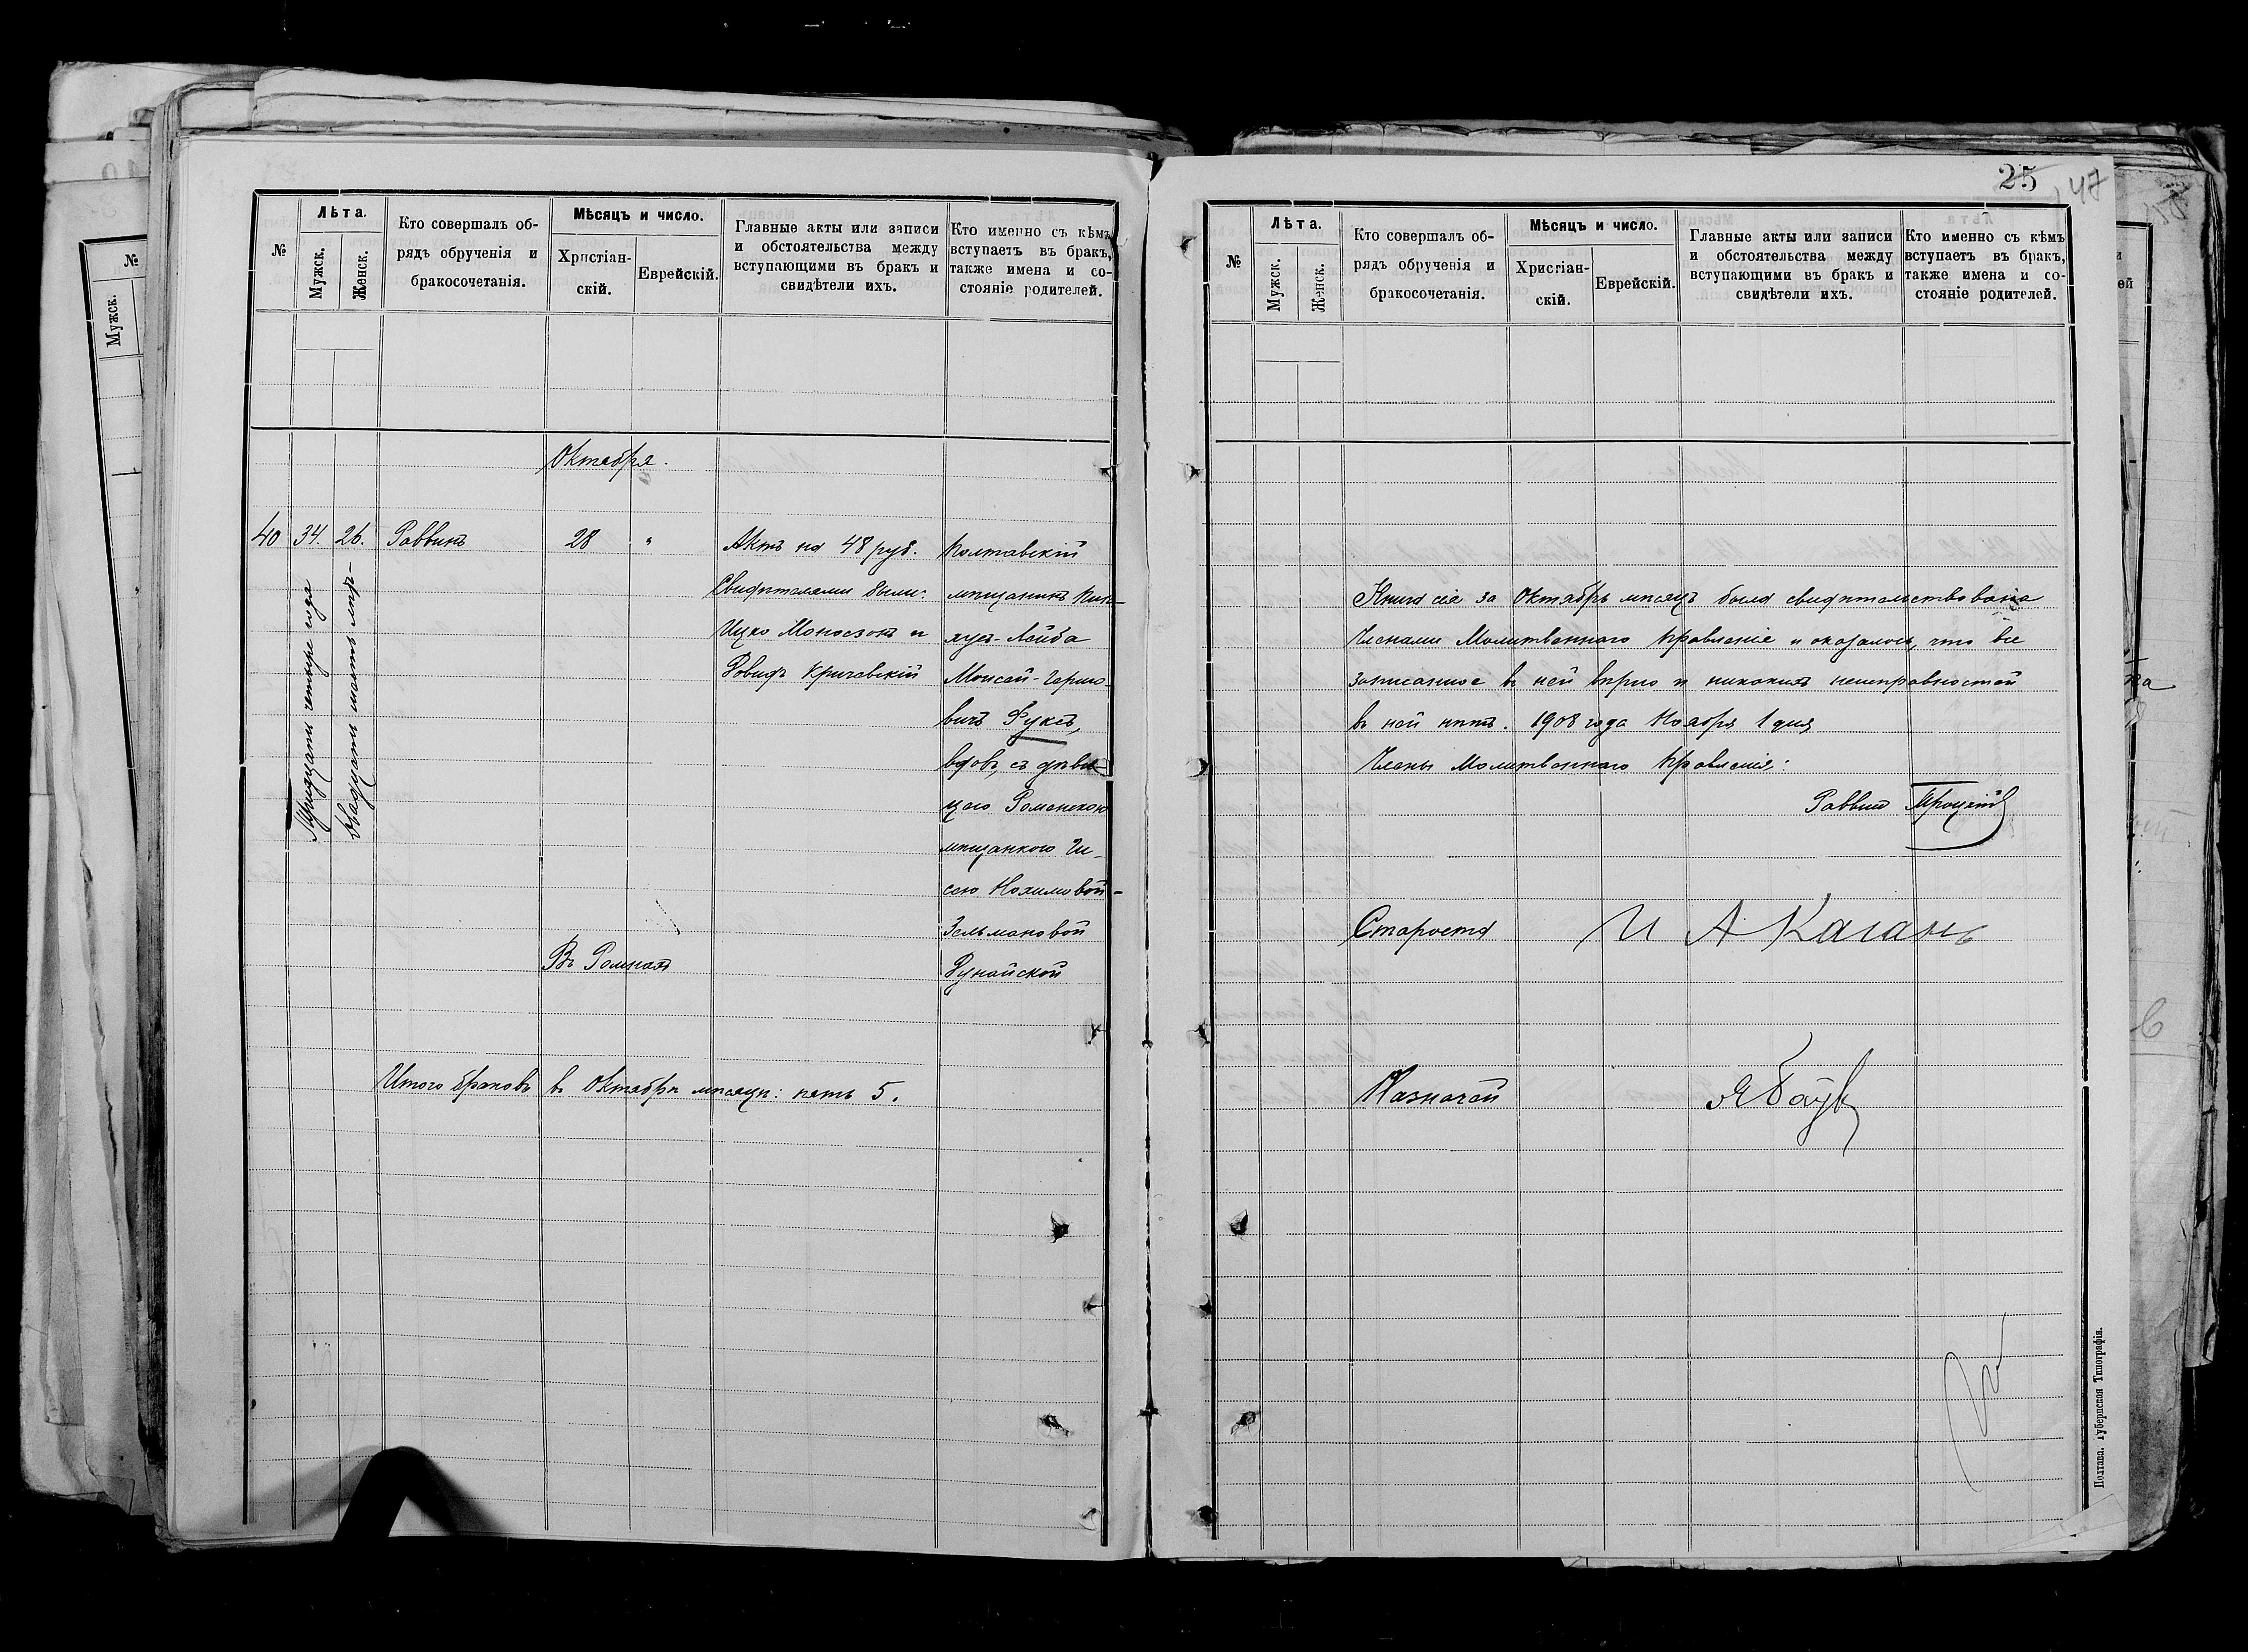 №
Лѣта.
Мужск.
Женск.
Кто совершалъ об-
рядъ обрученія и
бракосочетанія.
Мѣсяцъ и число.
Христіан-
скій.
Еврейскій.
Главные акты или записи
и обстоятельства между
вступающими въ бракъ и
свидѣтели ихъ.
Кто именно съ кѣмъ
вступаетъ въ бракъ,
также имена и со-
стояніе родителей.
Октября.
40 34. 26. Раввинъ 28 " Актъ на 48 руб.
Свидѣтелями были:
Ицко Моносзонъ и
Довидъ Кричевскій
Полтавскій
мѣщанинъ Пин-
хусъ-Лейба
Моисей-Герш
вичъ Фуксъ,
вдовъ, съ дѣви-
цею Роменскою
мѣщанкою
Нохимовой-
Зельмановой
Дунайской
Тридцати четыре года
Двадцать шесть лѣт-
Въ Ромнахъ
Итого браковъ въ Октябрѣ мѣсяцѣ: пять 5.
25
47
№
Лѣта.
Мужск.
Женск.
Кто совершалъ об-
рядъ обрученія и
бракосочетанія.
Мѣсяцъ и число.
Христіан-
скій.
Еврейскій.
Главные акты или записи
и обстоятельства между
вступающими въ бракъ и
свидѣтели ихъ.
Кто именно съ кѣмъ
вступаетъ въ бракъ,
также имена и со-
стояніе родителей.
Книга сія за Октябрь мѣсяцъ была свидѣтельствована
Членами Молитвеннаго Правленія и оказалось, что все
записанное въ ней вѣрно и никакихъ неисправностей
въ ней нѣтъ. 1908 года Ноября 1 дня
Члены Молитвеннаго Правленія:
Раввин Троцкій
Староста И А Каганъ
Казначей
Полтава. Губернская Типографія.
№
Мужск.